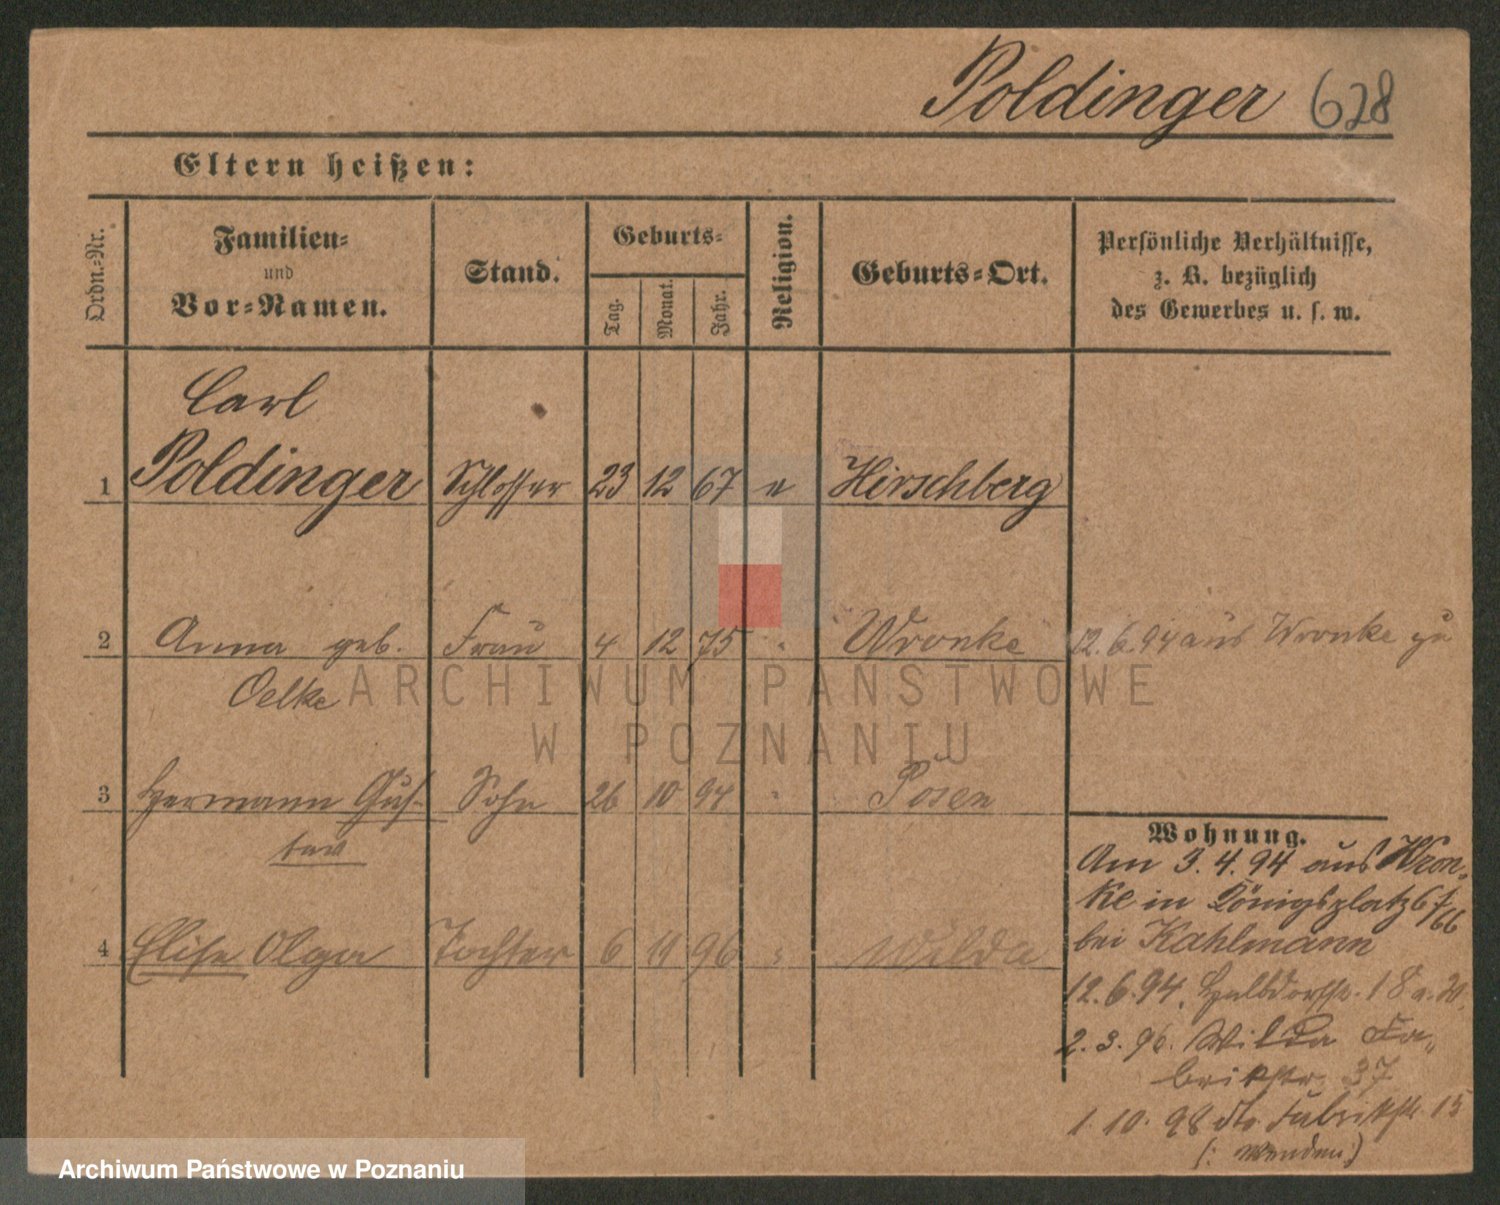 Poldinger 628
Eltern heißen:
Ordn.-Nr.
Familien-
und
Vor-Namen.
Stand.
Geburts-
Tag.
Monat.
Jahr.
Religion.
Geburts-Ort.
Persönliche Verhältnisse,
z. B. bezüglich
des Gewerbes u. s. w.
Carl
1 Poldinger Schlosser 23 12 67 e Hirschberg
2 Anna geb. Frau 4 12 75 " Wronke 12.6.94 aus Wronke zu
Oelke
3 Hermann Gus- Sohn 26 10 94 " Posen
tav
4 Elise Olga Tochter 6 11 96 " Wilda
Wohnung.
Am 3.4.94 aus Wron-
ke in Königsplatz 6 7/66
bei Kahlmann
12.6.94. Halbdorfstr. 18 a. 20.
2.3.96. Wilda Fa-
brikstr. 37
1.10.98 dto. Fabrikstr. 15
(: Wenden :)
ARCHIWUM PAŃSTWOWE
W POZNANIU
Archiwum Państwowe w Poznaniu